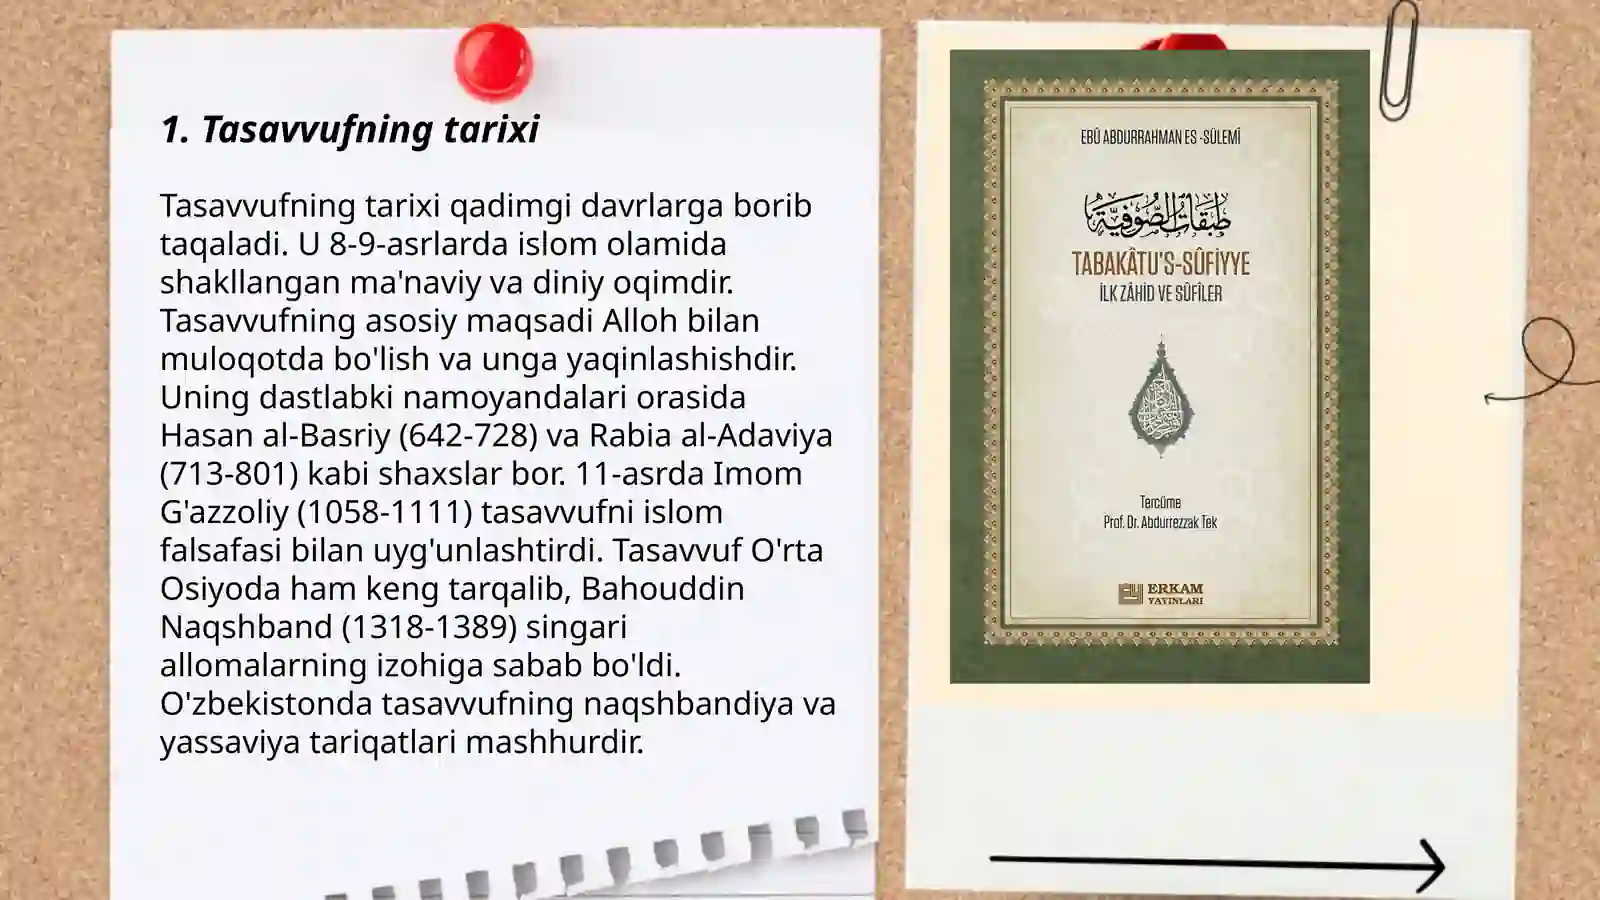 1. Tasavvufning tarixi
Tasavvufning tarixi qadimgi davrlarga borib
taqaladi. U 8-9-asrlarda islom olamida
shakllangan ma'naviy va diniy oqimdir.
Tasavvufning asosiy maqsadi Alloh bilan
muloqotda bo'lish va unga yaqinlashishdir.
Uning dastlabki namoyandalari orasida
Hasan al-Basriy (642-728) va Rabia al-Adaviya
(713-801) kabi shaxslar bor. 11-asrda Imom
G'azzoliy (1058-1111) tasavvufni islom
falsafasi bilan uyg'unlashtirdi. Tasavvuf O'rta
Osiyoda ham keng tarqalib, Bahouddin
Naqshband (1318-1389) singari
allomalarning izohiga sabab bo'ldi.
O'zbekistonda tasavvufning naqshbandiya va
yassaviya tariqatlari mashhurdir.
EBÛ ABDURRAHMAN ES -SÜLEMÎ
طبقات الصُّوفيَّة
TABAKÂTU'S-SÛFİYYE
İLK ZÂHİD VE SÛFÎLER
Tercüme
Prof. Dr. Abdurrezzak Tek
ERKAM
YAYINLARI